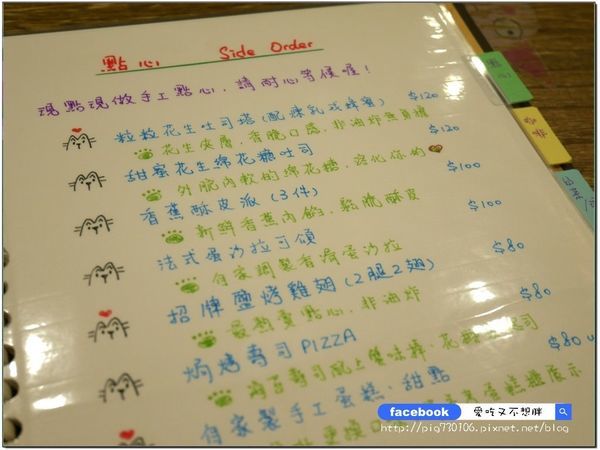 點心 Side Order
現點現做手工點心，請耐心等候喔！
粒粒花生吐司塔(配煉乳或蜂蜜) $120
花生夾層，香脆口感，非油炸無負擔
甜蜜花生綿花糖吐司 $120
外脆內軟的綿花糖，溶化你的
香蕉酥皮派(3件) $100
新鮮香蕉內餡，鬆脆酥皮
法式蛋沙拉可頌 $100
自家調製香滑蛋沙拉
招牌鹽烤雞翅(2腿2翅) $80
最熱賣點心，非油炸
焗烤壽司PIZZA $80
自家製手工蛋糕、甜點 $80
點心
facebook 愛吃又不想胖
http://pig730106.pixnet.net/blog